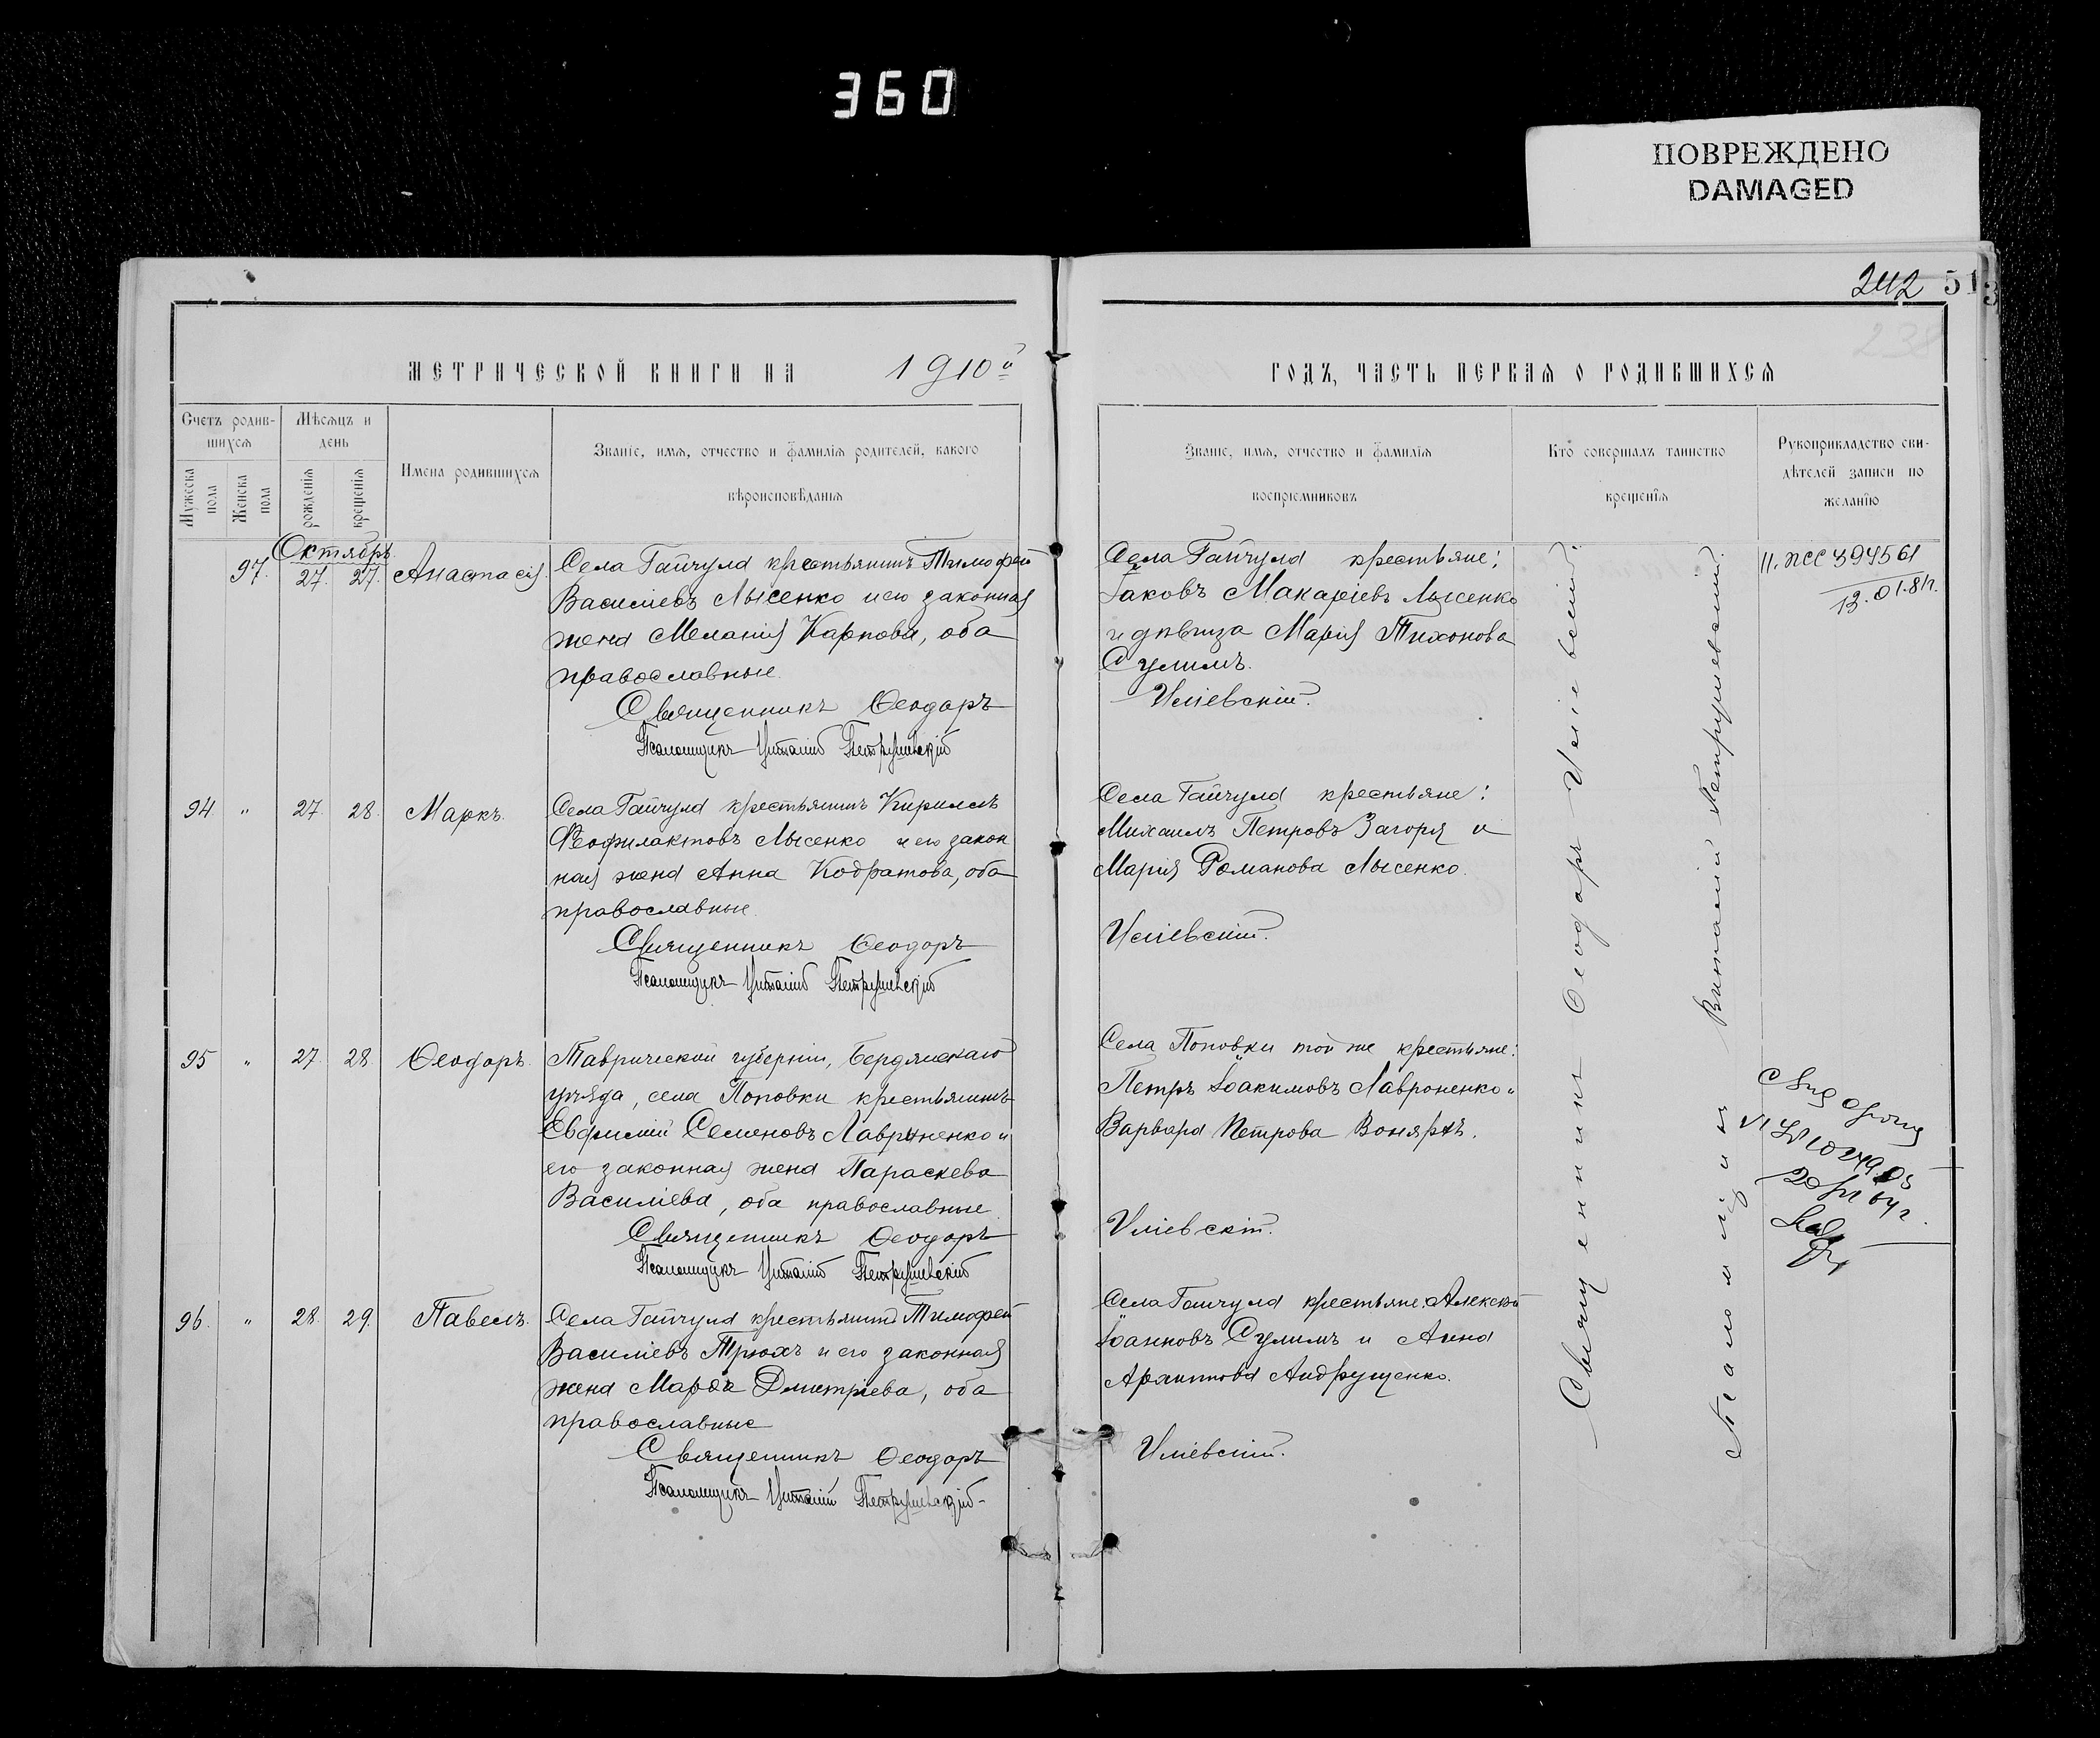 360
ПОВРЕЖДЕНО
DAMAGED
242 513
238
МЕТРИЧЕСКОЙ КНИГИ НА 1910й
ГОДЪ, ЧАСТЬ ПЕРВАЯ О РОДИВШИХСЯ
Счетъ родив-
шихся
Мужеска
пола
Женска
пола
Мѣсяцъ и
день
рожденія
крещенія
Имена родившихся
Званіе, имя, отчество и фамилія родителей, какого
вѣроисповѣданія
Званіе, имя, отчество и фамилія
воспріемниковъ
Кто совершалъ таинство
крещенія
Рукоприкладство сви-
дѣтелей записи по
желанію
Октябрь.
97. 27. 27. Анастасія.
Села Гайчула крестьянинъ Тимофей
Василіевъ Лысенко и его законная
жена Меланія Карпова, оба
православные.
Священникъ Ѳеодоръ
Псаломщикъ Виталій Петрушевскій
Села Гайчула крестьяне:
Іаковъ Макаріевъ Лысенко
и дѣвица Марія Тихонова
Сулимъ.
11. ЖСС 394561
12.01.81г.
94. " 27. 28. Маркъ.
Села Гайчула крестьянинъ Кириллъ
Феофилактовъ Лысенко и его закон
ная жена Анна Кодратова, оба
православные.
Священникъ Ѳеодоръ
Псаломщикъ Виталій Петрушевскій
Села Гайчула крестьяне:
Михаилъ Петровъ Загоря и
Марія Романова Лысенко.
95 " 27. 28 Ѳеодоръ.
Таврической губерніи, Бердянскаго
уѣзда, села Поповки крестьянинъ
Евфимій Семеновъ Лавриненко и
его законная жена Параскева
Василіева, оба православные.
Священникъ Ѳеодоръ
Псаломщикъ Виталій Петрушевскій
Села Поповки той же крестьяне:
Петръ Іоакимовъ Лавроненко и
Варвара Петрова
96. " 28. 29. Павелъ.
Села Гайчула крестьянинъ Тимофей
Василіевъ Трюхъ и его законная
жена Марѳа Дмитріева, оба
православные
Священникъ Ѳеодоръ
Псаломщикъ Виталій Петрушевскій
Села Гайчула крестьяне: Алексѣй
Іоанновъ Сулимъ и Анна
Архиппова Андрущенко.
Священникъ Ѳеодоръ
Псаломщикъ Виталій Петрушевскій.